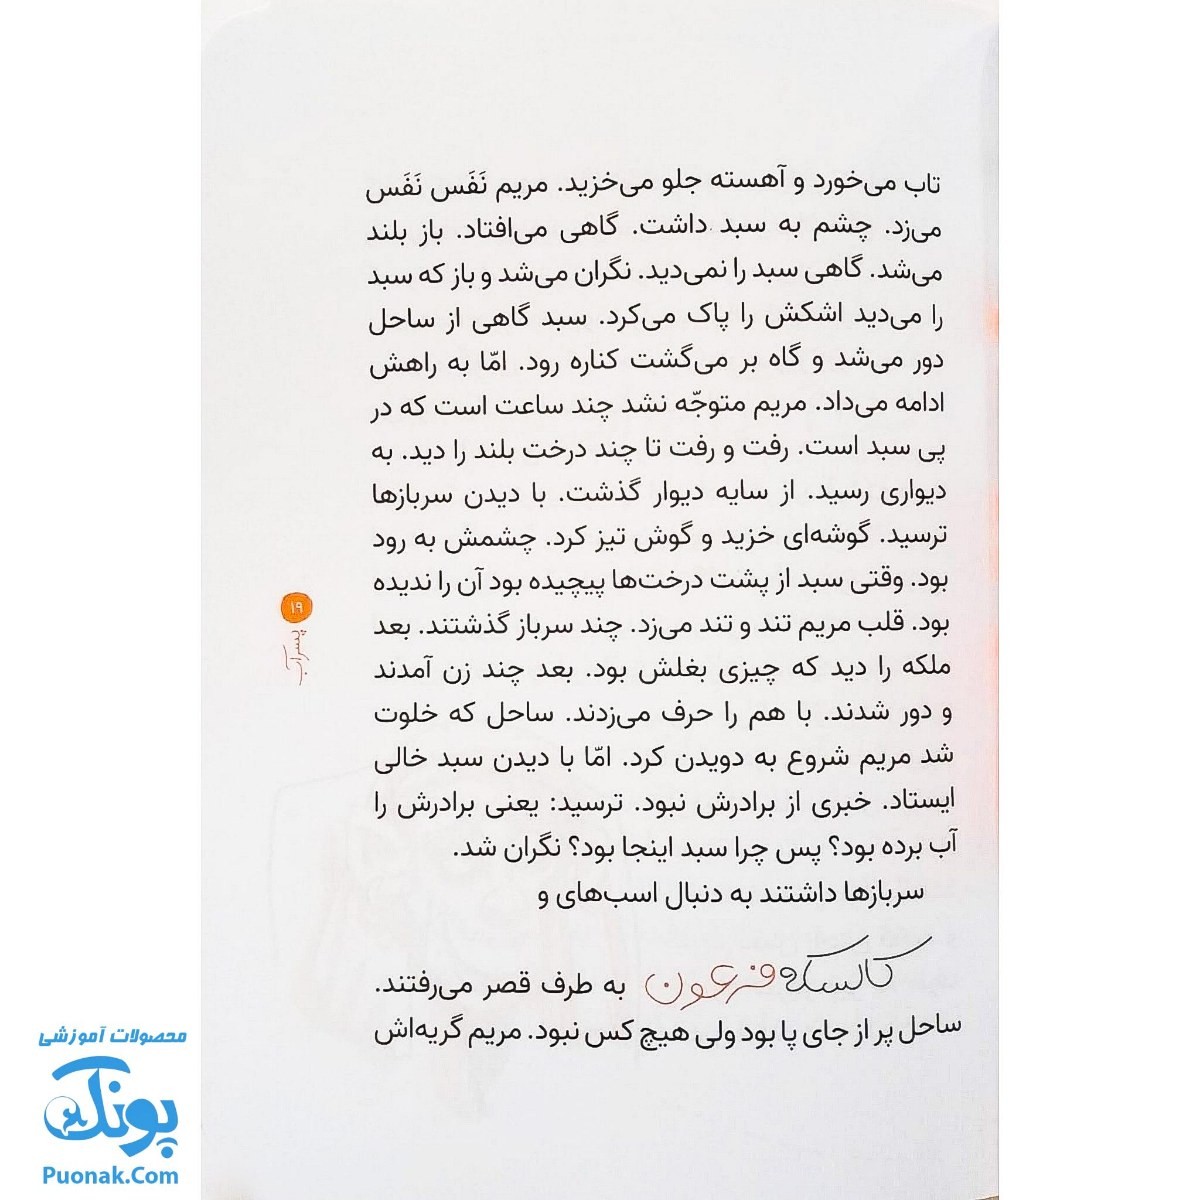 تاب می‌خورد و آهسته جلو می‌خزید. مریم نَفَس نَفَس
می‌زد. چشم به سبد داشت. گاهی می‌افتاد. باز بلند
می‌شد. گاهی سبد را نمی‌دید. نگران می‌شد و باز که سبد
را می‌دید اشکش را پاک می‌کرد. سبد گاهی از ساحل
دور می‌شد و گاه بر می‌گشت کناره رود. امّا به راهش
ادامه می‌داد. مریم متوجّه نشد چند ساعت است که در
پی سبد است. رفت و رفت تا چند درخت بلند را دید. به
دیواری رسید. از سایه دیوار گذشت. با دیدن سربازها
ترسید. گوشه‌ای خزید و گوش تیز کرد. چشمش به رود
بود. وقتی سبد از پشت درخت‌ها پیچیده بود آن را ندیده
بود. قلب مریم تند و تند می‌زد. چند سرباز گذشتند. بعد
ملکه را دید که چیزی بغلش بود. بعد چند زن آمدند
و دور شدند. با هم را حرف می‌زدند. ساحل که خلوت
شد مریم شروع به دویدن کرد. امّا با دیدن سبد خالی
ایستاد. خبری از برادرش نبود. ترسید: یعنی برادرش را
آب برده بود؟ پس چرا سبد اینجا بود؟ نگران شد.
سربازها داشتند به دنبال اسب‌های و
کالسکه فرعون به طرف قصر می‌رفتند.
ساحل پر از جای پا بود ولی هیچ کس نبود. مریم گریه‌اش
۱۹
پسر آب
محصولات آموزشی
پونک
Puonak.Com